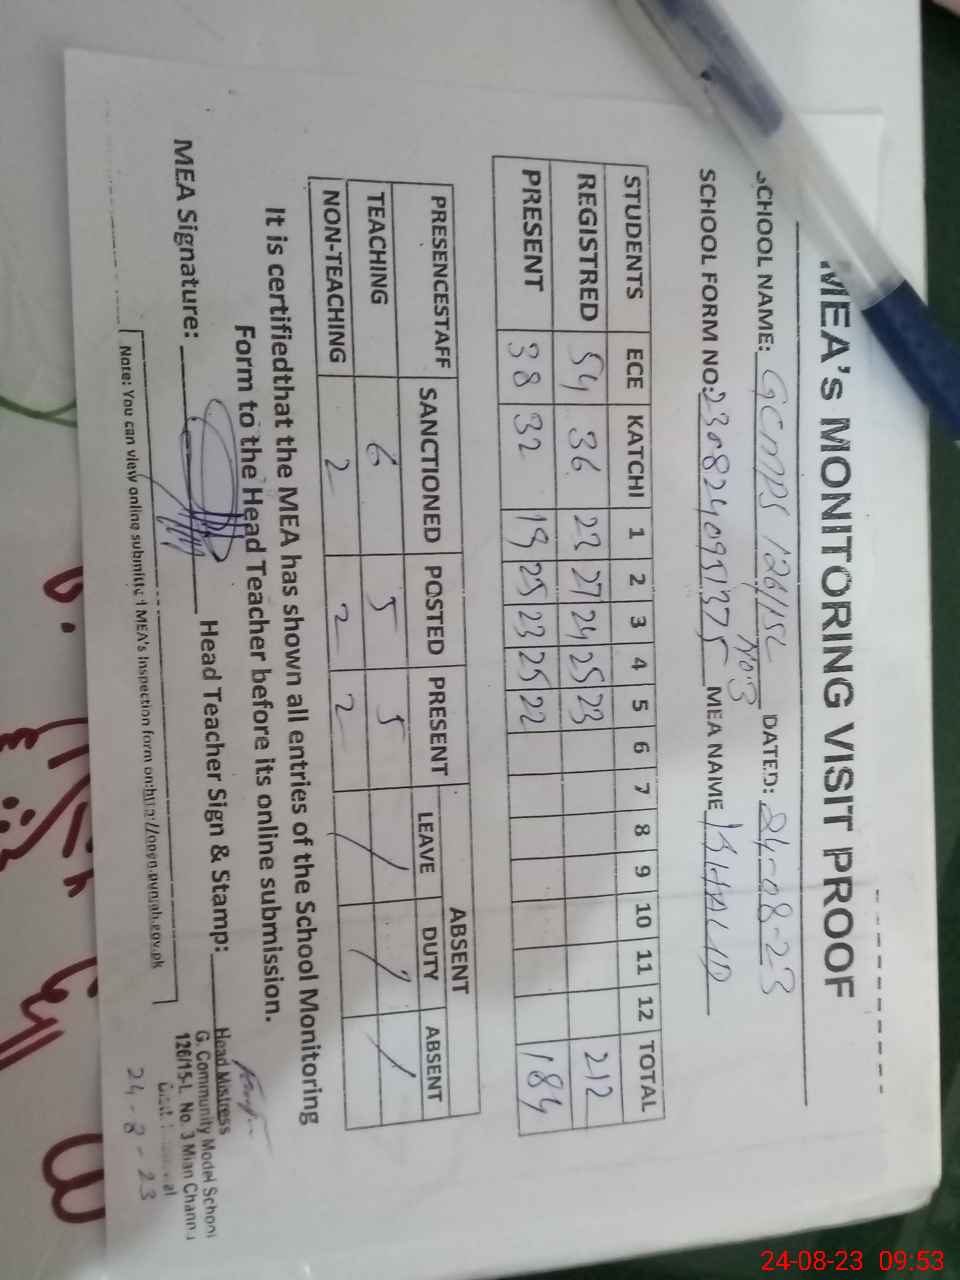 MEA's MONITORING VISIT PROOF
SCHOOL NAME: GCMPS 126/15L No.3 DATED: 24-08-23
SCHOOL FORM NO: MEA NAME KHALID
STUDENTS ECE KATCHI 1 2 3 4 5 6 7 8 9 10 11 12 TOTAL
REGISTRED 54 36 23 27 24 25 23 212
PRESENT 38 32 19 25 23 25 22 184
PRESENCESTAFF SANCTIONED POSTED PRESENT ABSENT
LEAVE DUTY ABSENT
TEACHING 6 5 5 / / /
NON-TEACHING 2 2 2
It is certifiedthat the MEA has shown all entries of the School Monitoring
Form to the Head Teacher before its online submission.
MEA Signature: Head Teacher Sign & Stamp:
Head Mistress
G. Community Model School
126/15-L No. 3 Mian Channu
24-8-23
Note: You can view online submitted MEA's Inspection form on:http://open.punjab.gov.pk
24-08-23 09:53